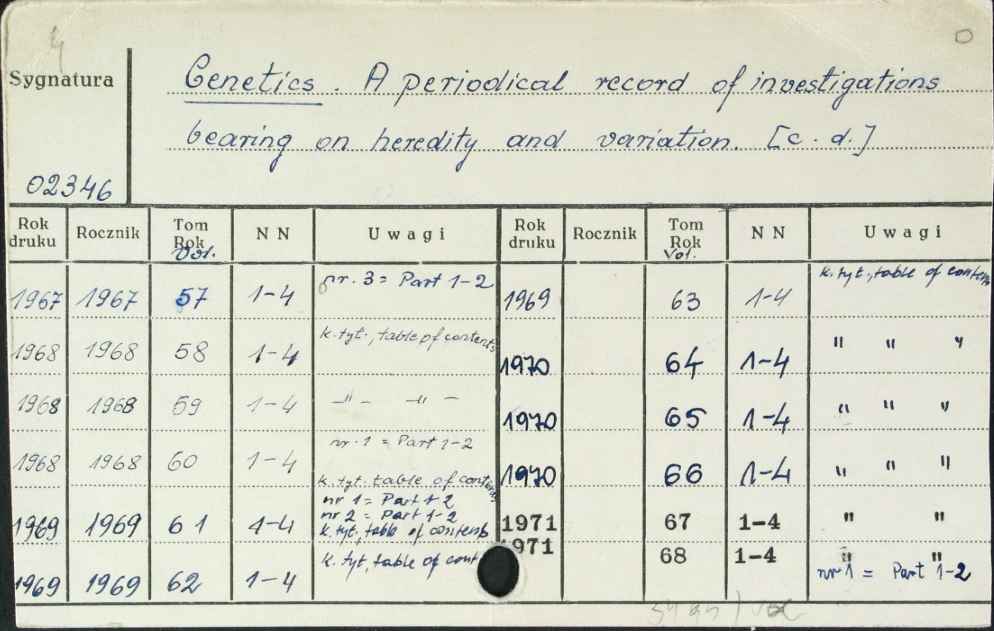 Sygnatura
Genetics. A periodical record of investigations
bearing on heredity and variation. [c. d.]
02346
Rok druku Rocznik Tom Rok Vol. NN Uwagi Rok druku Rocznik Tom Rok Vol. NN Uwagi
1967 1967 57 1-4 nr. 3 = Part 1-2 1969 63 1-4 k. tyt., table of contents
1968 1968 58 1-4 k. tyt., table of contents 1970 64 1-4 " " "
1968 1968 59 1-4 -"- -"- 1970 65 1-4 " " "
1968 1968 60 1-4 nr. 1 = Part 1-2
k. tyt. table of contents 1970 66 1-4 " " "
1969 1969 61 1-4 nr 1 = Part 1-2
nr 2 = Part 1-2
k. tyt, table of contents 1971 67 1-4 " "
1969 1969 62 1-4 k. tyt, table of cont 1971 68 1-4 " "
nr 1 = Part 1-2